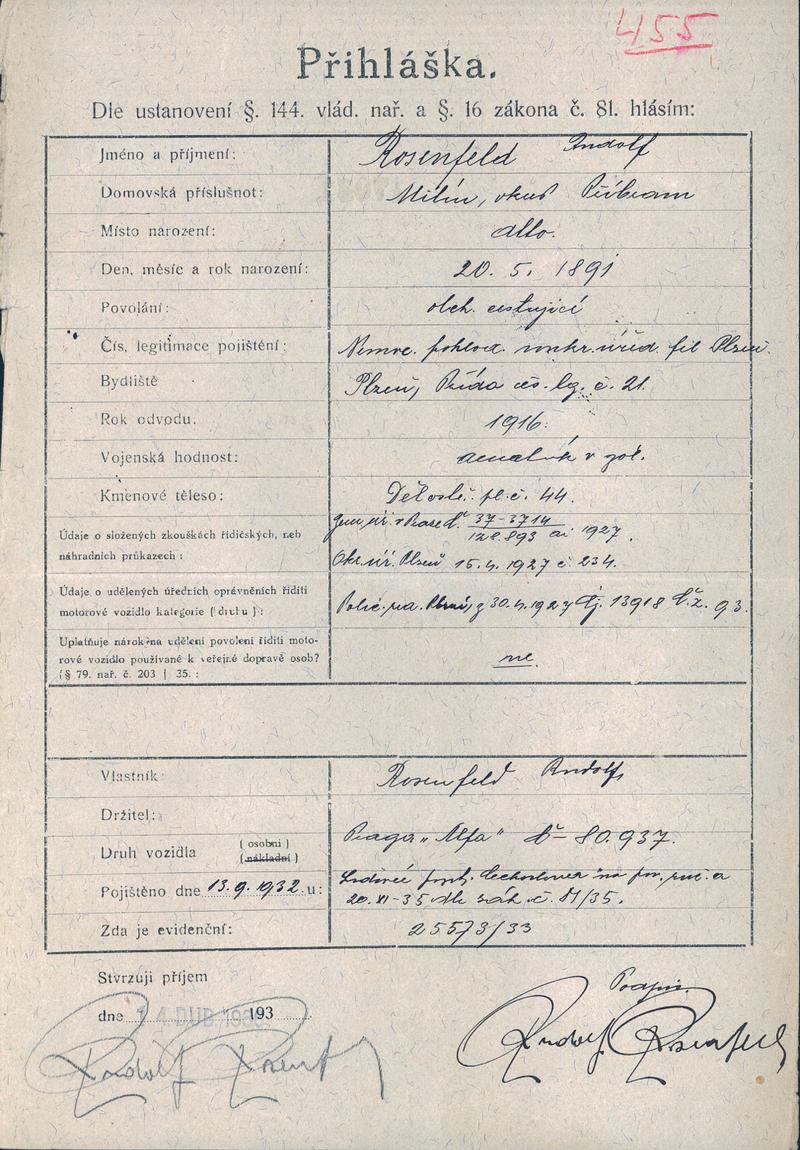 455
Přihláška.
Dle ustanovení §. 144. vlád. nař. a §. 16 zákona č. 81. hlásím:
Jméno a příjmení: Rosenfeld Rudolf
Domovská příslušnot: Milín, okres Příbram
Místo narození: dtto.
Den, měsíc a rok narození: 20. 5. 1891
Povolání: obch. cestující
Čís. legitimace pojištění: Nemoc. pokład. soukr. úřed. fil Plzeň.
Bydliště Plzeň, Třída čs. lg. č. 21.
Rok odvodu: 1916.
Vojenská hodnost: v zál.
Kmenové těleso: Děl. pl. č. 44.
Údaje o složených zkouškách řidičských, neb
37-3714
128.893 1927.
náhradních průkazech: Okr. úř. Plzeň 15.4. 1927 č. 234.
Údaje o udělených úředních oprávněních říditi
motorové vozidlo kategorie (druhu): Polic. Plzni, z 30.4. 1927 Čj. 13918 Č. z. 93.
Uplatňuje nárok na udělení povolení říditi moto-
rové vozidlo používané k veřejné dopravě osob? ne.
(§ 79. nař. č. 203 | 35.:
Vlastník: Rosenfeld Rudolf,
Držitel:
Druh vozidla (osobni) (nákladní) Praga "Alfa" Č- 80.937.
Pojištěno dne 13.9. 1932 u:
20. XI - 35 dle zák. č. 81/35.
Zda je evidenční: 25573/33
Stvrzuji příjem
Podpis.
dne 14 DUB 193
Rudolf Rosenfeld
Rudolf Rosenfeld